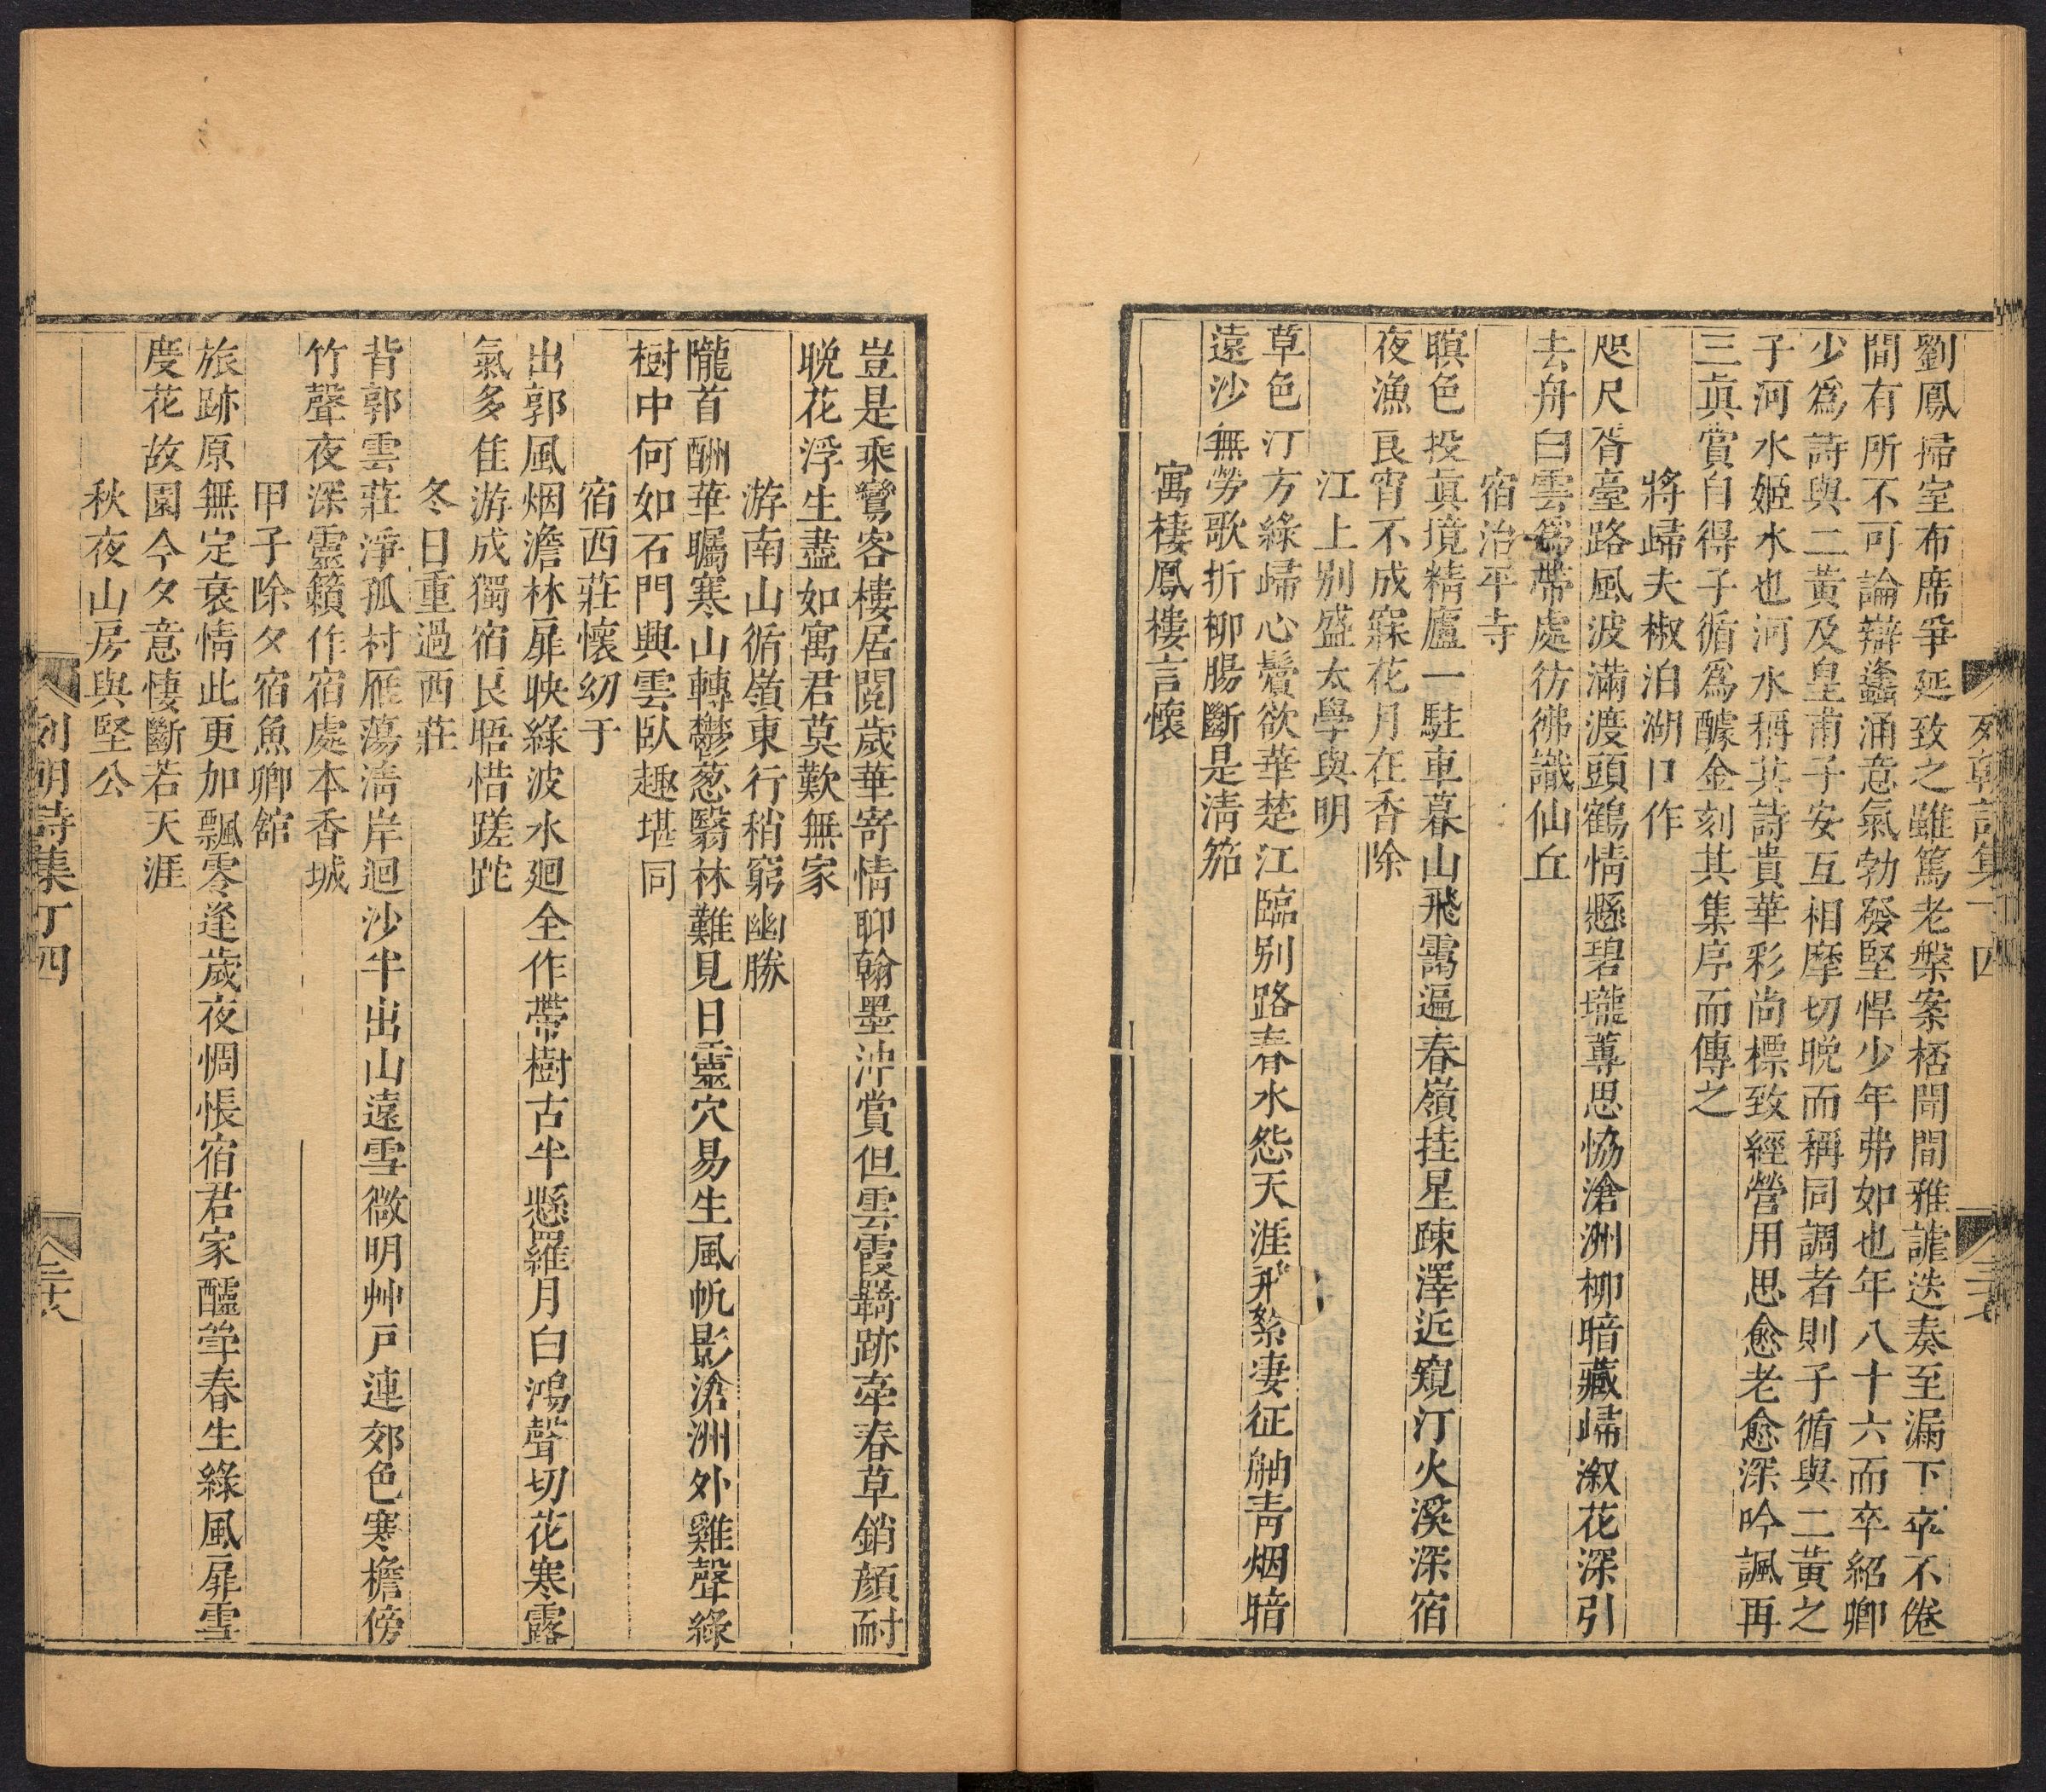 劉鳳掃室布席爭延致之雖篤老槃案桮閒間雅謔迭奏至漏下卒不倦
間有所不可論辯逢涌意氣勃發堅悍少年弗如也年八十六而卒紹卿
少爲詩與二黃及皇甫子安互相摩切晚而稱同調者則子循與二黃之
子河水姬水也河水稱其詩貴華彩尚標致經營用思愈老愈深吟諷再
三眞賞自得子循爲醵金刻其集序而傳之
將歸夫椒泊湖口作
咫尺胥臺路風波滿渡頭鶴情懸碧壠蓴思恊滄洲柳暗藏歸溆花深引
去舟白雲爲帶處彷彿識仙丘
宿治平寺
暝色投眞境精廬一駐車暮山飛靄遍春嶺挂星疎澤近窺汀火溪深宿
夜漁良宵不成寐花月在香除
江上別盛太學與明
草色汀方綠歸心鬢欲華楚江臨別路春水怨天涯飛絮凄征舳靑烟暗
遠沙無勞歌折柳腸斷是淸笳
寓棲鳳樓言懷
列朝詩集丁四
三十七
豈是乘鸞客樓居閱歲華寄情聊翰墨沖賞但雲霞羇跡牽春草銷顏耐
晚花浮生盡如寓君莫歎無家
游南山循嶺東行稍窮幽勝
隴首酬華矚寒山轉鬱葱翳林難見日靈穴易生風帆影滄洲外雞聲綠
樹中何如石門興雲臥趣堪同
宿西莊懷幼于
出郭風烟澹林扉映綠波水廻全作帶樹古半懸羅月白鴻聲切花寒露
氣多佳游成獨宿良晤惜蹉跎
冬日重過西莊
背郭雲莊淨孤村雁蕩淸岸迴沙半出山遠雪微明艸戸連郊色寒檐傍
竹聲夜深靈籟作宿處本香城
甲子除夕宿魚卿舘
旅跡原無定衰情此更加飄零逢歲夜惆悵宿君家醽斝春生綠風扉雪
度花故園今夕意悽斷若天涯
秋夜山房與堅公
列朝詩集丁四
三十八